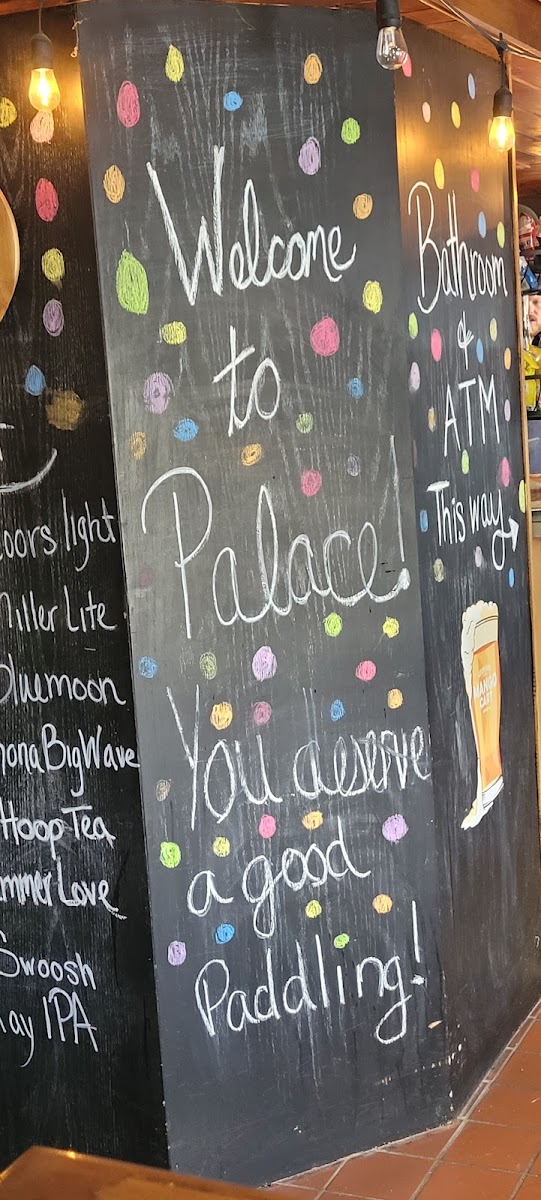 Welcome
to
Palace!
You deserve
a good
Paddling!
Bathroom
&
ATM
This way →
MANGO
CART
light
Miller Lite
Bluemoon
Big Wave
Hoop Tea
Love
Swoosh
IPA